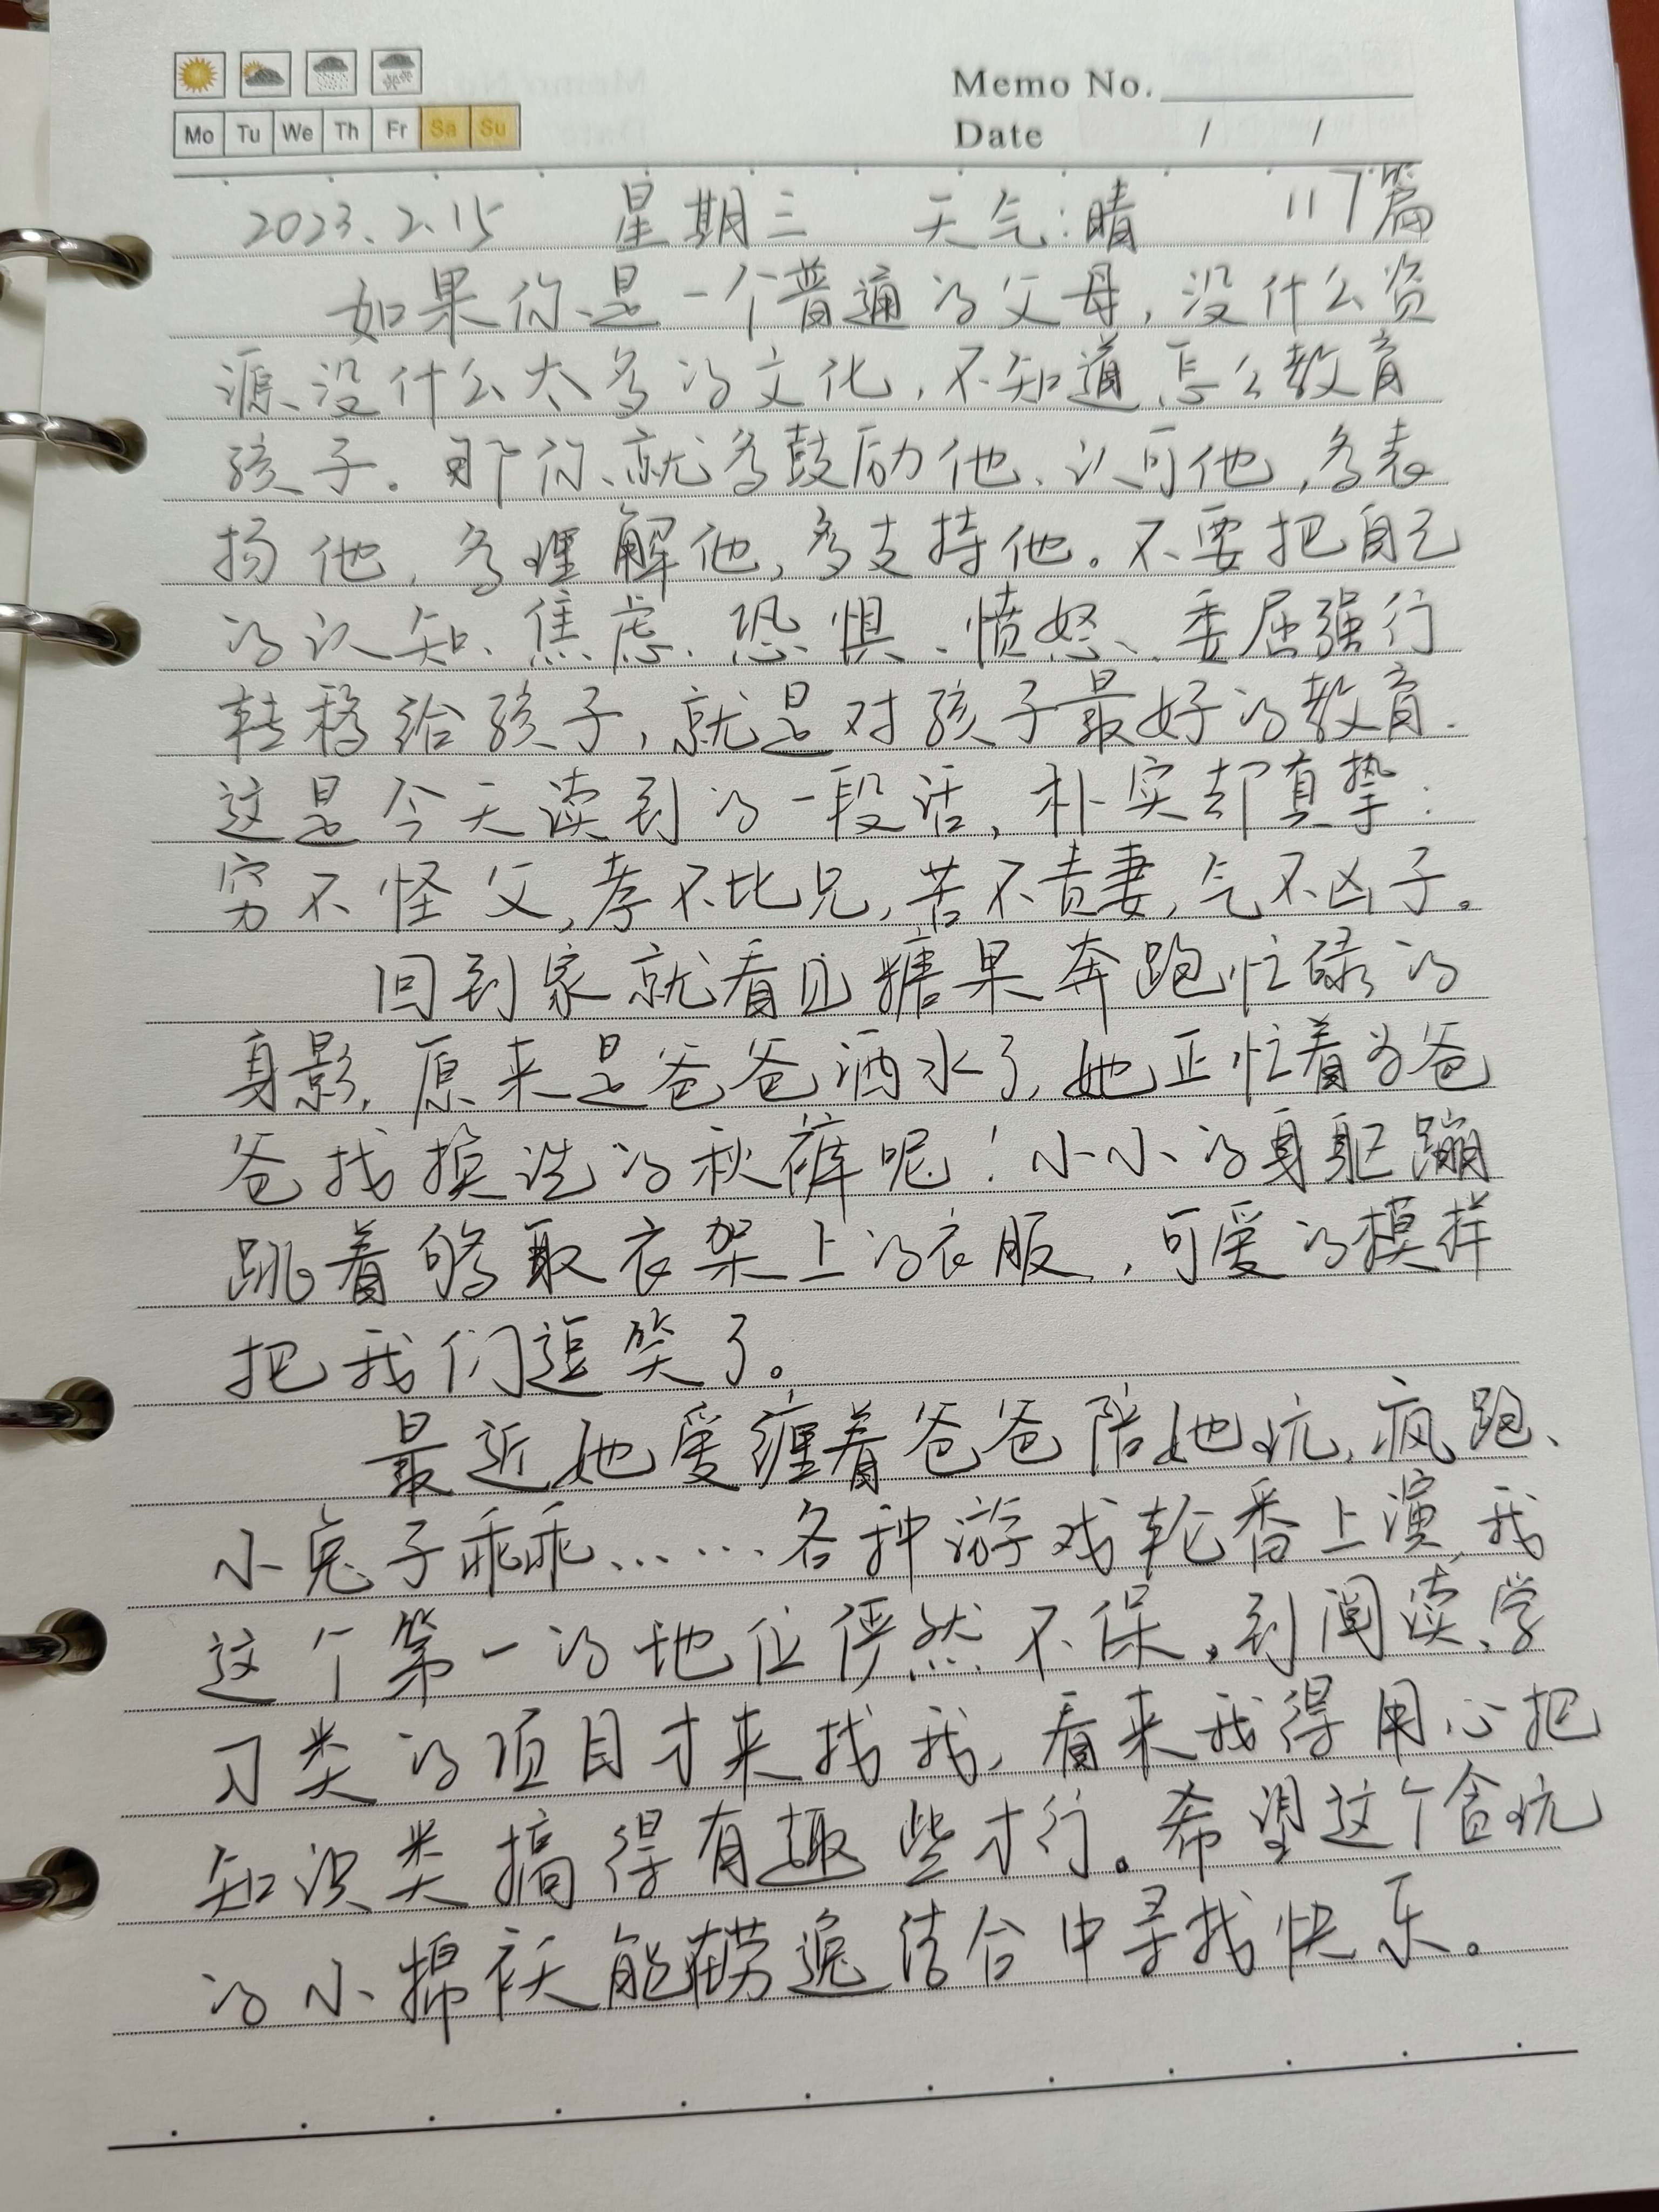 Mo Tu We Th Fr Sa Su
Memo No.
Date / /
2023.2.15 星期三 天气:晴 117篇
如果你是一个普通的父母,没什么资
源、没什么太多的文化,不知道怎么教育
孩子。那你就多鼓励他、认可他,多表
扬他,多理解他,多支持他。不要把自己
的认知、焦虑、恐惧、愤怒、委屈强行
转移给孩子,就是对孩子最好的教育.
这是今天读到的一段话,朴实却真挚:
穷不怪父,孝不比兄,苦不责妻,气不凶子。
回到家就看见糖果奔跑忙碌的
身影,原来是爸爸洒水了,她正忙着为爸
爸找换洗的秋裤呢!小小的身躯蹦
跳着够取衣架上的衣服,可爱的模样
把我们逗笑了。
最近她爱缠着爸爸陪她玩,疯跑、
小兔子乖乖……各种游戏轮番上演,我
这个第一的地位俨然不保。到阅读、学
习类的项目才来找我,看来我得用心把
知识类搞得有趣些才行。希望这个贪玩
的小棉袄能在劳逸结合中寻找快乐。